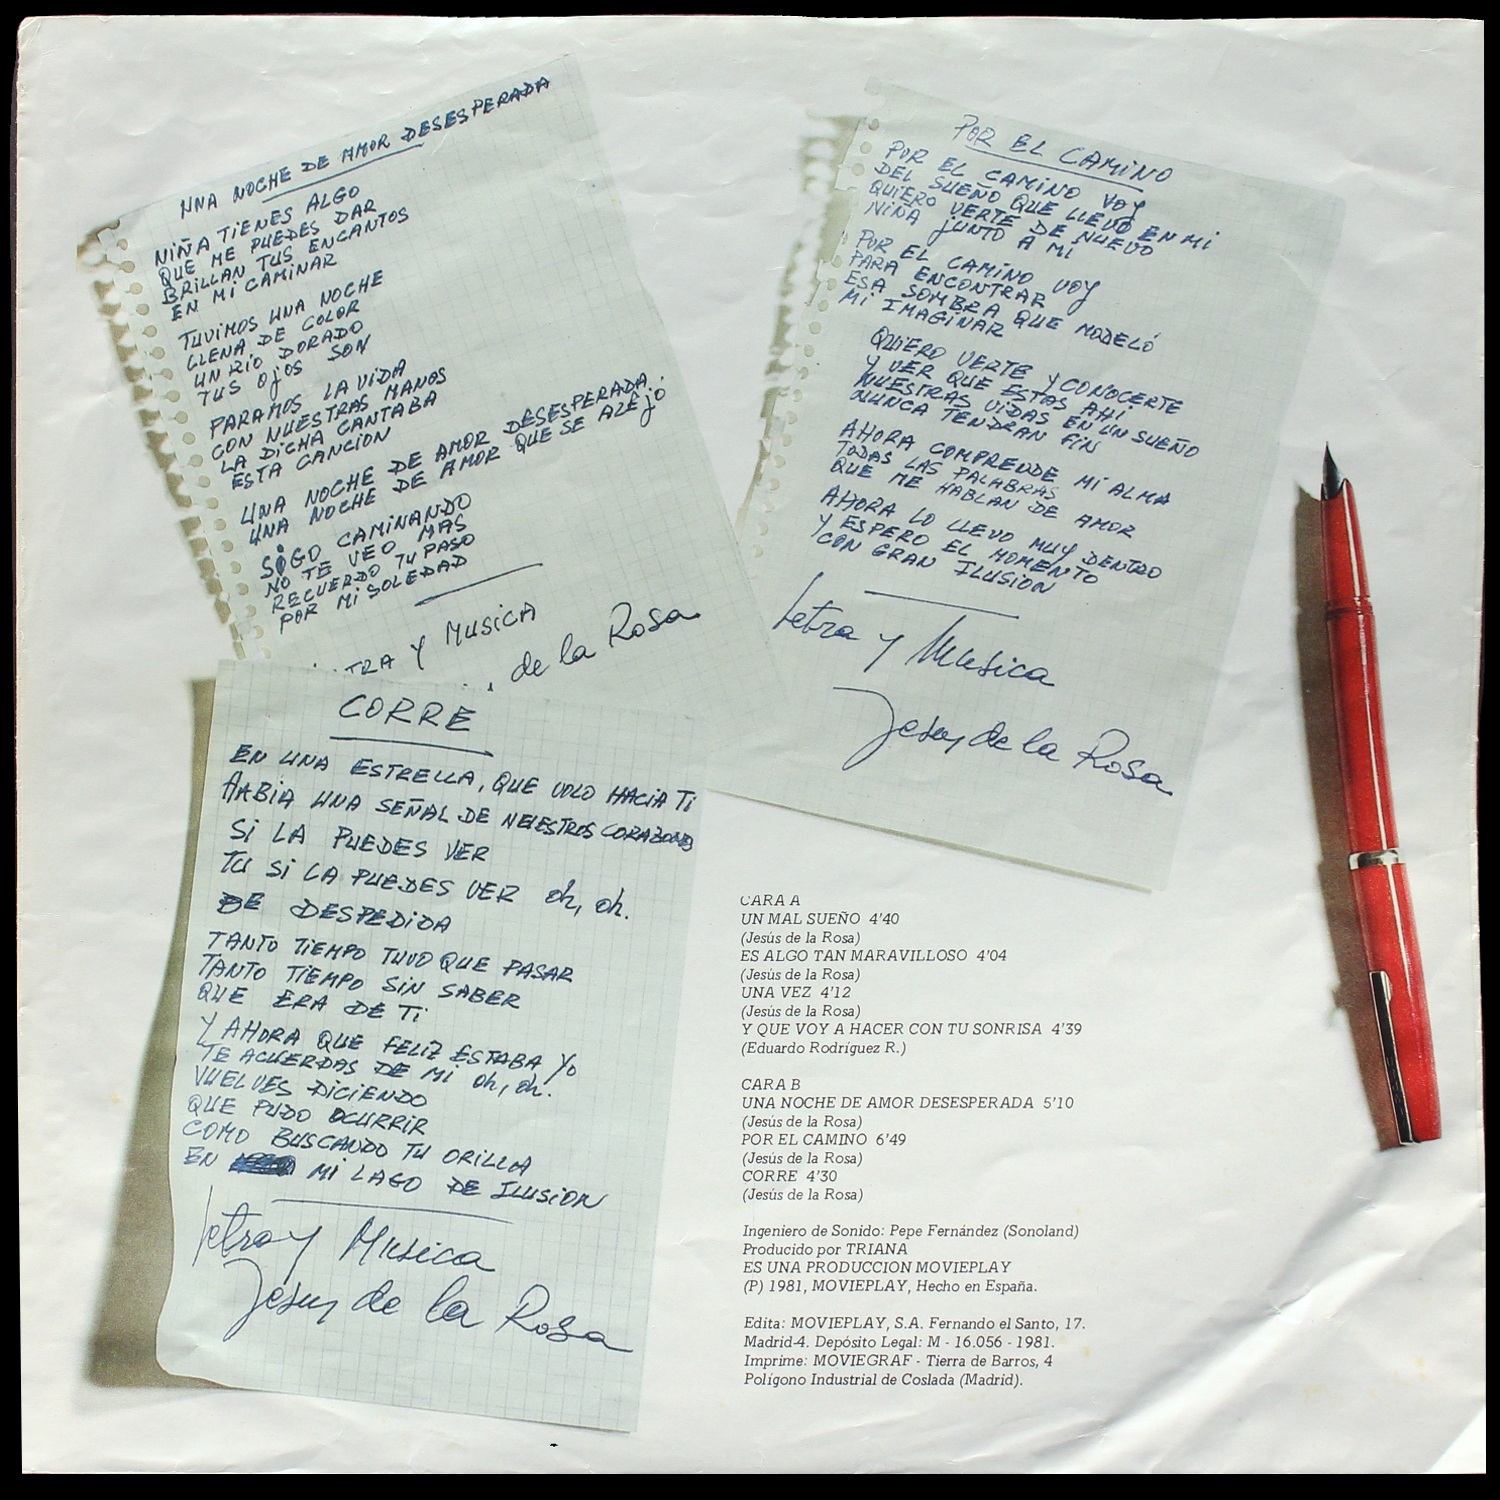 UNA NOCHE DE AMOR DESESPERADA
NIÑA TIENES ALGO
QUE ME PUEDES DAR
BRILLAN TUS ENCANTOS
EN MI CAMINAR
TUVIMOS UNA NOCHE
LLENA DE COLOR
UN RIO DORADO
TUS OJOS SON
PARAMOS LA VIDA
CON NUESTRAS MANOS
LA DICHA CANTABA
ESTA CANCION
UNA NOCHE DE AMOR DESESPERADA.
UNA NOCHE DE AMOR QUE SE ALEJO
SIGO CAMINANDO
NO TE VEO MAS
RECUERDO TU PASO
POR MI SOLEDAD
TRA Y MUSICA
de la Rosa
POR EL CAMINO
POR EL CAMINO VOY
DEL SUEÑO QUE LLEVO EN MI
QUIERO VERTE DE NUEVO
NIÑA JUNTO A MI
POR EL CAMINO VOY
PARA ENCONTRAR
ESA SOMBRA QUE MODELÓ
MI IMAGINAR
QUIERO VERTE Y CONOCERTE
Y VER QUE ESTAS AHI
NUESTRAS VIDAS EN UN SUEÑO
NUNCA TENDRAN FIN
AHORA COMPRENDE MI ALMA
TODAS LAS PALABRAS
QUE ME HABLAN DE AMOR
AHORA LO LLEVO MUY DENTRO
Y ESPERO EL MOMENTO
CON GRAN ILUSION
Letra y Musica
Jesus de la Rosa
CORRE
EN UNA ESTRELLA, QUE VOLO HACIA TI
HABIA UNA SEÑAL DE NEUESTROS CORAZONES
SI LA PUEDES VER
TU SI LA PUEDES VER oh, oh.
DE DESPEDIDA
TANTO TIEMPO TUVO QUE PASAR
TANTO TIEMPO SIN SABER
QUE ERA DE TI
Y AHORA QUE FELIZ ESTABA YO
TE ACUERDAS DE MI oh, oh.
VUELVES DICIENDO
QUE PUDO OCURRIR
COMO BUSCANDO TU ORILLA
EN MI LAGO DE ILUSION
Letra y Musica
Jesus de la Rosa
CARA A
UN MAL SUEÑO 4'40
(Jesús de la Rosa)
ES ALGO TAN MARAVILLOSO 4'04
(Jesús de la Rosa)
UNA VEZ 4'12
(Jesús de la Rosa)
Y QUE VOY A HACER CON TU SONRISA 4'39
(Eduardo Rodríguez R.)
CARA B
UNA NOCHE DE AMOR DESESPERADA 5'10
(Jesús de la Rosa)
POR EL CAMINO 6'49
(Jesús de la Rosa)
CORRE 4'30
(Jesús de la Rosa)
Ingeniero de Sonido: Pepe Fernández (Sonoland)
Producido por TRIANA
ES UNA PRODUCCION MOVIEPLAY
(P) 1981, MOVIEPLAY, Hecho en España.
Edita: MOVIEPLAY, S.A. Fernando el Santo, 17.
Madrid-4. Depósito Legal: M - 16.056 - 1981.
Imprime: MOVIEGRAF - Tierra de Barros, 4
Polígono Industrial de Coslada (Madrid).